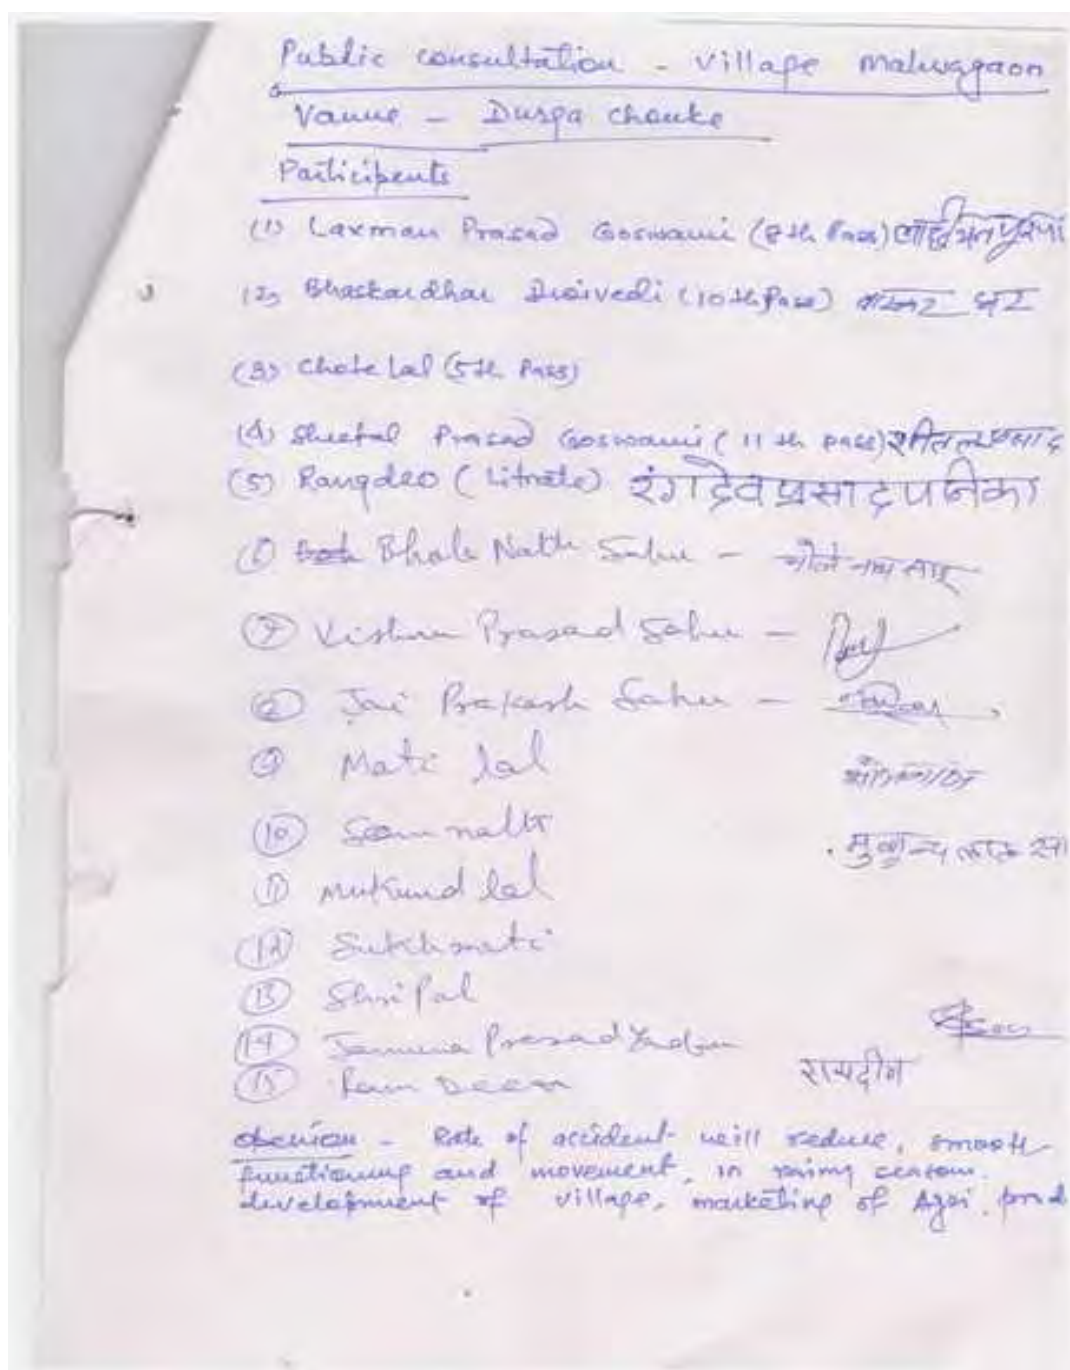 Public consultation - village malwagaon
Vanue - Durga Chauke
Participents
(1) Laxman Prasad Goswami (8th Pass)
(2) Bhaskardhar Dwivedi (10th Pass) धर
(3) Chote Lal (5th Pass)
(4) Sheetal Prasad Goswami (11th pass) शीतल प्रसाद
(5) Rangdeo (Litrate) रंगदेव प्रसाद पनिका
(6) Bhole Nath Sahu - भोले नाथ साहू
(7) Vishnu Prasad Sahu -
(8) Jai Prakash Sahu -
(9) Moti lal
(10) Somnath
मुकुन्द लाल
(11) Mukund lal
(12) Sukhmati
(13) Shri Pal
(14) Jamuna Prasad Yadav
(15) Ram Deen रामदीन
Openion - Rate of accident will reduce, smooth
functioning and movement, in rainy season.
development of village, marketing of Agri. prod